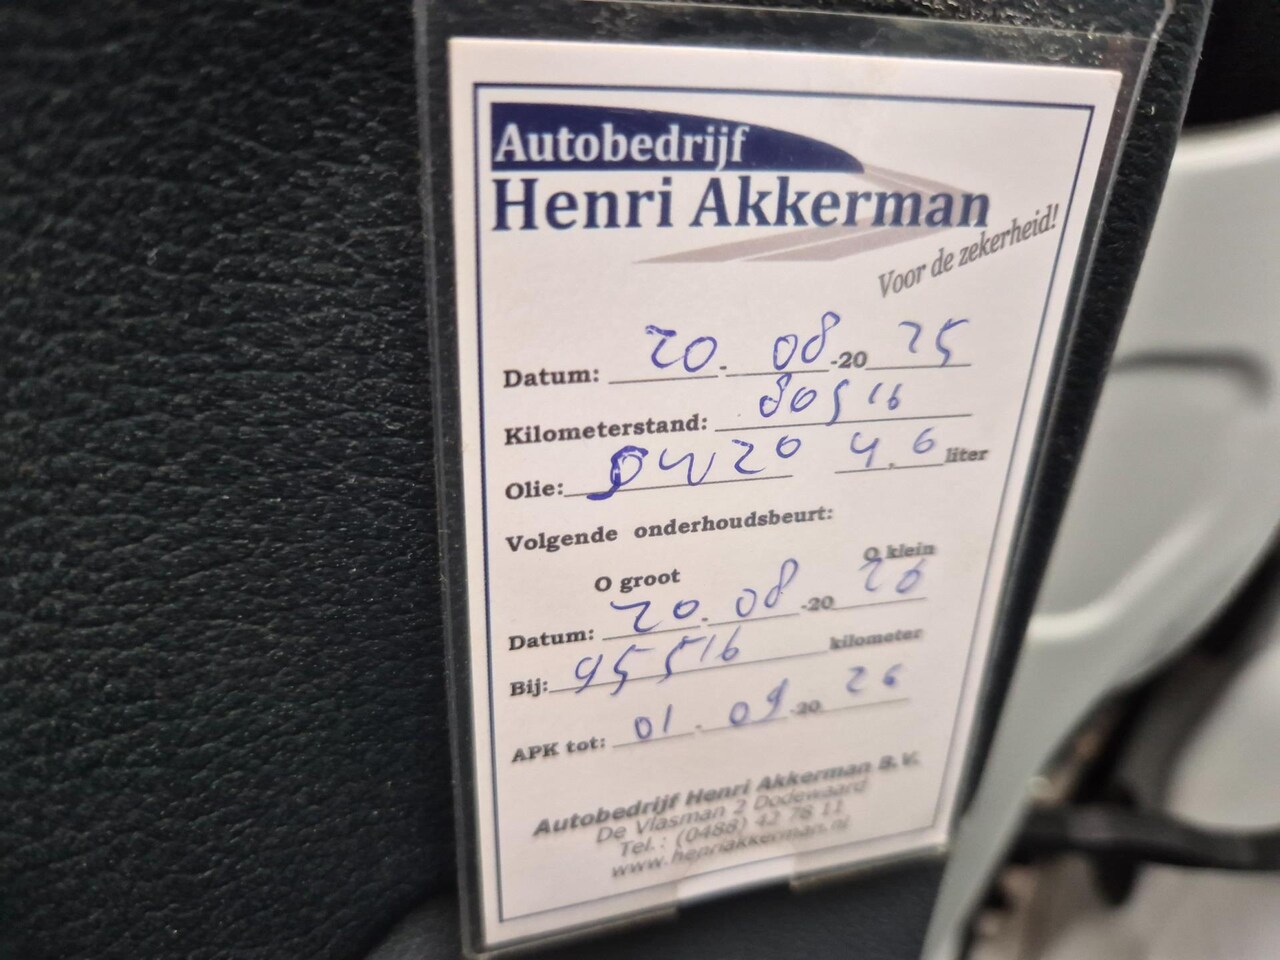 Autobedrijf
Henri Akkerman
Voor de zekerheid!
Datum: 20 - 08 -20 25
Kilometerstand: 80516
Olie: 0W20 4.6 liter
Volgende onderhoudsbeurt:
O groot O klein
Datum: 20 - 08 -20 26
Bij: 95516 kilometer
APK tot: 01 - 09 -20 26
Autobedrijf Henri Akkerman B.V.
De Vlasman 2 Dodewaard
Tel.: (0488) 42 78 11
www.henriakkerman.nl